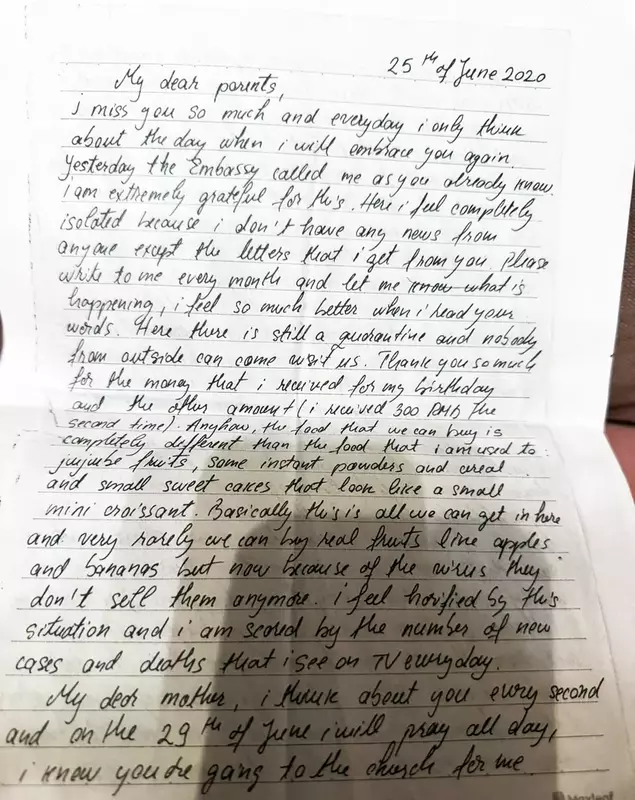 25 th of June 2020
My dear parents,
i miss you so much and everyday i only think
about the day when i will embrace you again.
Yesterday the Embassy called me as you already know.
i am extremely grateful for this. Here i feel completely
isolated because i don't have any news from
anyone except the letters that i get from you. Please
write to me every month and let me know what is
happening, i feel so much better when i read your
words. Here there is still a quarantine and nobody
from outside can come visit us. Thank you so much
for the money that i received for my birthday
and the other amount (i received 300 RMB the
second time). Anyhow, the food that we can buy is
completely different than the food that i am used to:
jujube fruits, some instant powders and cereal
and small sweet cakes that look like a small
mini croissant. Basically this is all we can get in here
and very rarely we can buy real fruits like apples
and bananas but now because of the virus they
don't sell them anymore. i feel horified by this
situation and i am scared by the number of new
cases and deaths that i see on TV everyday.
My dear mother, i think about you every second
and on the 29 th of June i will pray all day,
i know you're going to the church for me.